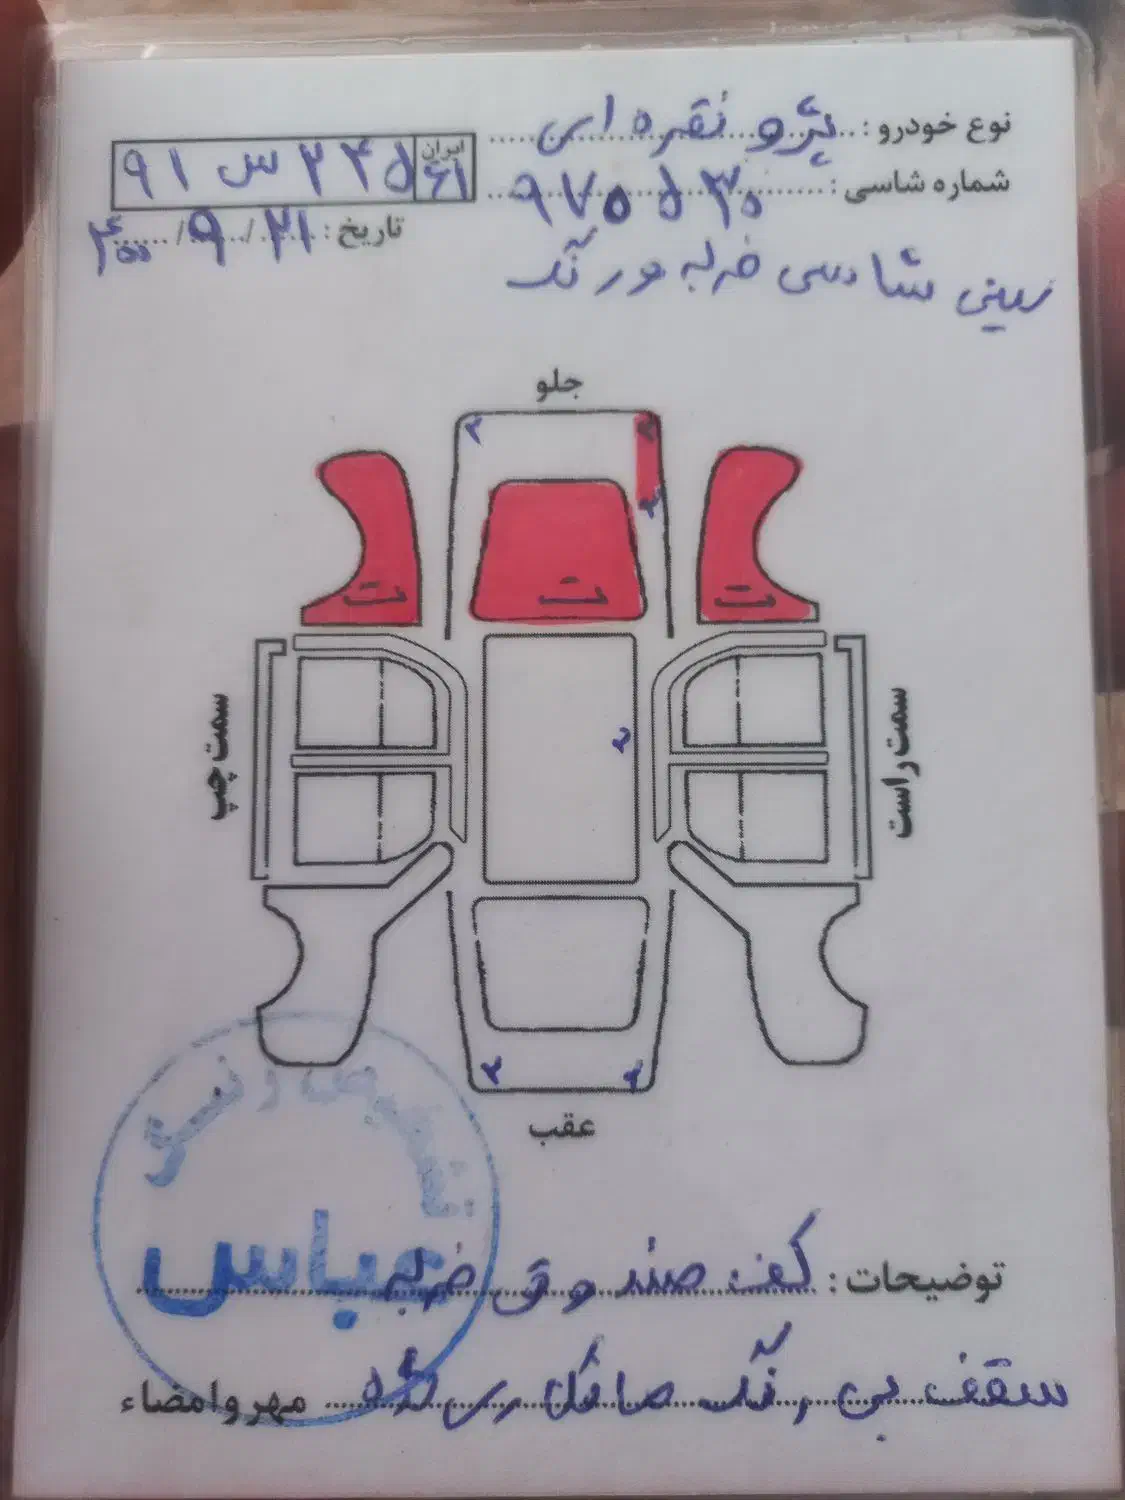 نوع خودرو : پژو نقره ای
شماره شاسی : ۹۷۵۵۳۰
۹۱ س ۲۴۵ ایران ۶۱
تاریخ : ۲۱ / ۹ / ۴۰۰
سینی شاسی ضربه و رنگ
جلو
۳
۳
۳
ت
ت
ت
سمت چپ
سمت راست
۳
۳
۳
عقب
عباس
توضیحات : کف صندوق ضربه
سقف بی رنگ صافکاری شده
مهر و امضاء